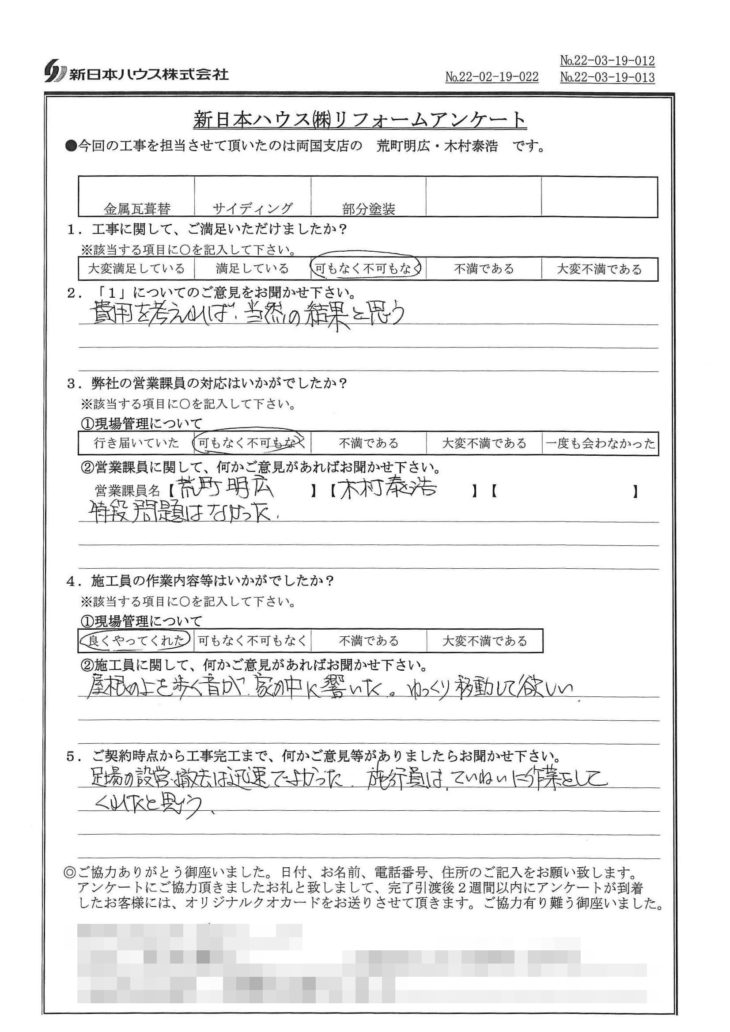 新日本ハウス株式会社
№22-03-19-012
№22-02-19-022 №22-03-19-013
新日本ハウス㈱リフォームアンケート
●今回の工事を担当させて頂いたのは両国支店の 荒町明広・木村泰浩 です。
金属瓦葺替 サイディング 部分塗装
1．工事に関して、ご満足いただけましたか？
※該当する項目に○を記入して下さい。
大変満足している 満足している 可もなく不可もなく 不満である 大変不満である
2．「1」についてのご意見をお聞かせ下さい。
費用を考えれば、当然の結果と思う
3．弊社の営業課員の対応はいかがでしたか？
※該当する項目に○を記入して下さい。
①現場管理について
行き届いていた 可もなく不可もなく 不満である 大変不満である 一度も会わなかった
②営業課員に関して、何かご意見があればお聞かせ下さい。
営業課員名【荒町明広 】【木村泰浩 】【 】
特段問題はなかった.
4．施工員の作業内容等はいかがでしたか？
※該当する項目に○を記入して下さい。
①現場管理について
良くやってくれた 可もなく不可もなく 不満である 大変不満である
②施工員に関して、何かご意見があればお聞かせ下さい。
屋根の上を歩く音が家の中に響いた。ゆっくり移動して欲しい
5．ご契約時点から工事完工まで、何かご意見等がありましたらお聞かせ下さい。
足場の設営、撤去は迅速でよかった. 施行員は、ていねいに作業をして
くれたと思う、
◎ご協力ありがとう御座いました。日付、お名前、電話番号、住所のご記入をお願い致します。
アンケートにご協力頂きましたお礼と致しまして、完了引渡後２週間以内にアンケートが到着
したお客様には、オリジナルクオカードをお送りさせて頂きます。ご協力有り難う御座いました。